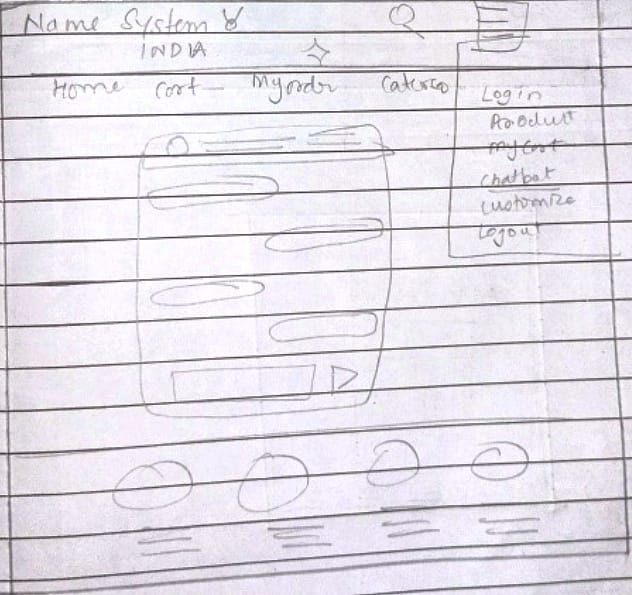 Name System
INDIA
Home Cart Myorder
Login
Product
My Cart
Chatbot
Customize
Logout